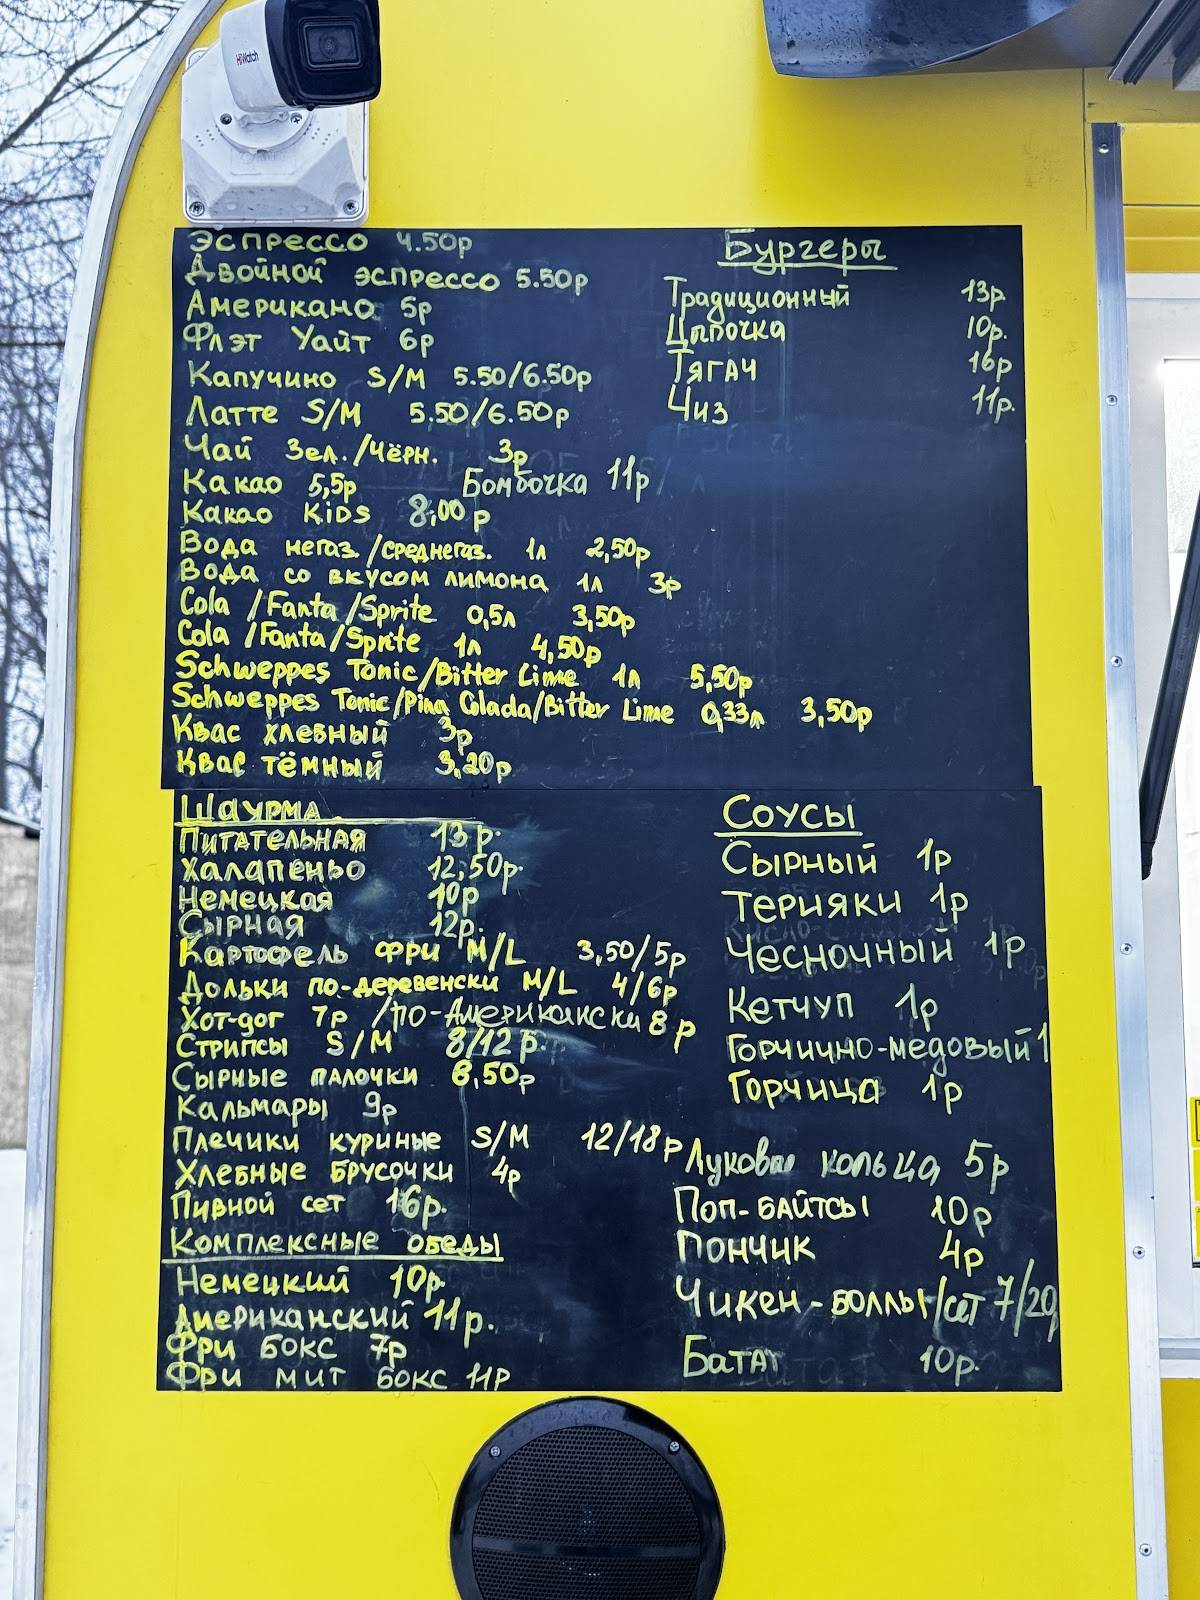 HiWatch
Эспрессо 4.50р
Двойной эспрессо 5.50р
Американо 5р
Флэт Уайт 6р
Капучино S/M 5.50/6.50р
Латте S/M 5.50/6.50р
Чай Зел./Чёрн. 3р
Какао 5,5р Бомбочка 11р
Какао KiDS 8,00р
Вода негаз./среднегаз. 1л 2,50р
Вода со вкусом лимона 1л 3р
Cola/Fanta/Sprite 0,5л 3,50р
Cola/Fanta/Sprite 1л 4,50р
Schweppes Tonic/Bitter Lime 1л 5,50р
Schweppes Tonic/Pina Colada/Bitter Lime 0,33л 3,50р
Квас хлебный 3р
Квас тёмный 3,20р
Бургеры
Традиционный 13р.
Цыпочка 10р.
Тягач 16р
Чиз 11р.
Шаурма
Питательная 13р.
Халапеньо 12,50р.
Немецкая 10р
Сырная 12р.
Картофель фри M/L 3,50/5р
Дольки по-деревенски M/L 4/6р
Хот-дог 7р /по-Американски 8р
Стрипсы S/M 8/12р.
Сырные палочки 8,50р
Кальмары 9р
Плечики куриные S/M 12/18р
Хлебные брусочки 4р
Пивной сет 16р.
Комплексные обеды
Немецкий 10р.
Американский 11р.
Фри бокс 7р
Фри мит бокс 11р
Соусы
Сырный 1р
Терияки 1р
Чесночный 1р
Кетчуп 1р
Горчично-медовый 1
Горчица 1р
Луковые кольца 5р
Поп-байтсы 10р
Пончик 4р
Чикен-боллы/сет 7/20р
Батат 10р.